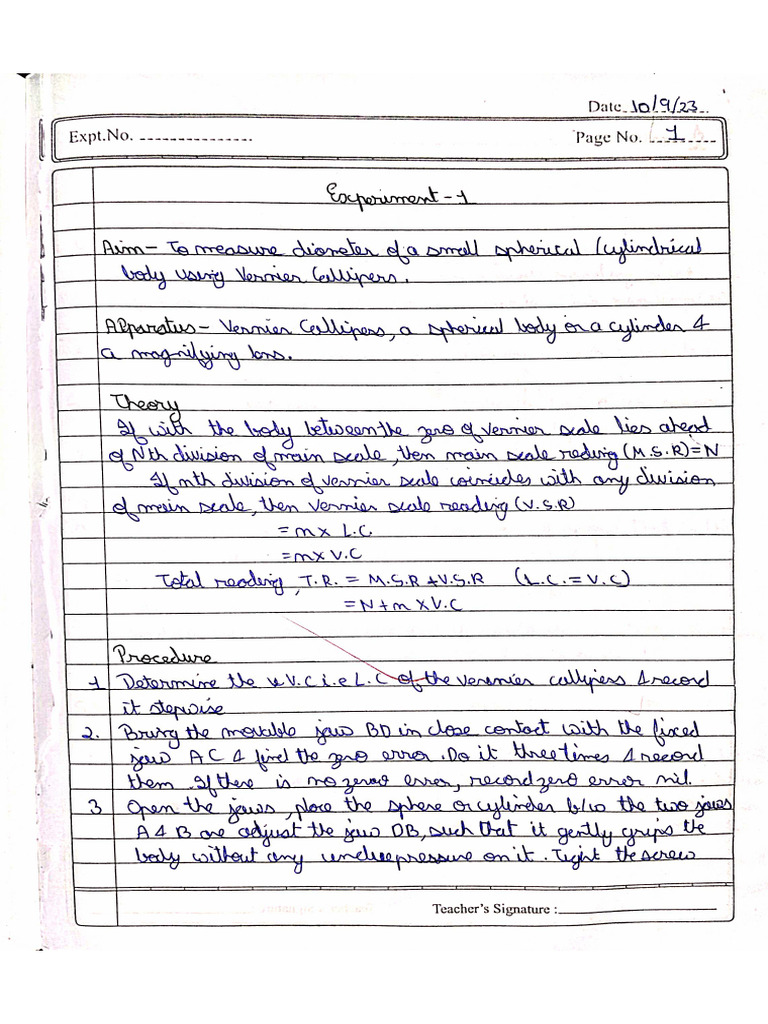 Date 10/9/23
Expt.No.
Page No. 1
Experiment-1
Aim- To measure diameter of a small spherical /cylindrical
body using Vernier Callipers.
Apparatus- Vernier Callipers, a spherical body or a cylinder &
a magnifying lens.
Theory
If with the body between the zero of vernier scale lies ahead
of Nth division of main scale, then main scale reding (M.S.R)=N
If nth division of vernier scale coinicdes with any division
of main scale, then vernier scale reading (V.S.R)
= n x L.C.
= n x V.C
Total reading, T.R. = M.S.R + V.S.R (L.C. = V.C)
= N + n x V.C
Procedure
1 Determine the V.C i.e L.C of the verenier callipers & record
it stepwise
2. Bring the movable jaw BD in close contact with the fixed
jaw AC & find the zero error. Do it three times & record
them. If there is no zero error, record zero error nil.
3 Open the jaws, place the sphere or cylinder b/w the two jaws
A & B are adjust the jaw DB, such that it gently grips the
body without any undue pressure on it. Tight the screw
Teacher's Signature :